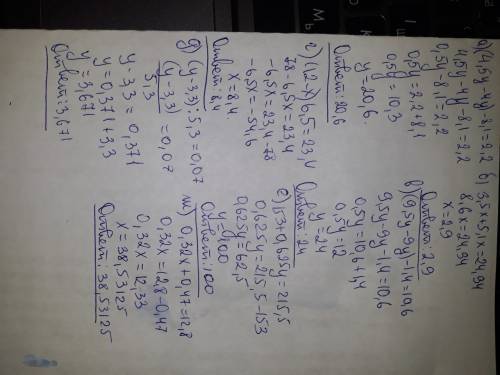 а) (4,5y-4y)-8,1=2,2
4,5y-4y-8,1=2,2
0,5y-8,1=2,2
0,5y=2,2+8,1
0,5y=10,3
y=20,6
Ответ: 20,6
г) (12-x)·6,5=23,4
78-6,5x=23,4
-6,5x=23,4-78
-6,5x=-54,6
x=8,4
Ответ: 8,4
д) (y-3,3):5,3=0,07
(y-3,3)
5,3
=0,07
y-3,3=0,371
y=0,371+3,3
y=3,671
Ответ: 3,671
б) 3,5x+5,1x=24,94
8,6x=24,94
x=2,9
Ответ: 2,9
в) (9,5y-9y)-1,4=10,6
9,5y-9y-1,4=10,6
0,5y=10,6+1,4
0,5y=12
y=24
Ответ: 24
е) 153+0,625y=215,5
0,625y=215,5-153
0,625y=62,5
y=100
Ответ: 100
ж) 0,32x+0,47=12,8
0,32x=12,8-0,47
0,32x=12,33
x=38,53125
Ответ: 38,53125